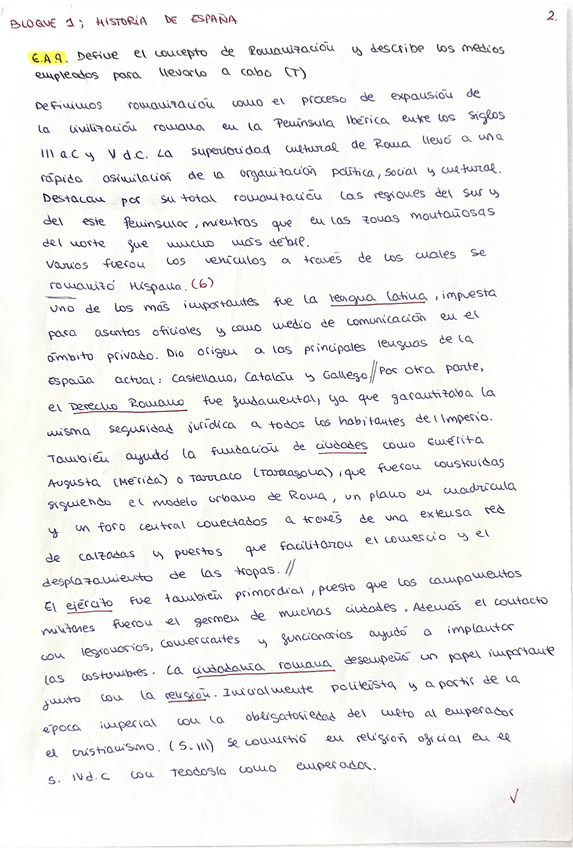 BLOQUE 1; HISTORIA DE ESPAÑA
2.
E.A 9. Define el concepto de Romanización y describe los medios
empleados para llevarlo a cabo (T)
Definimos romanización como el proceso de expansión de
la civilización romana en la Península Ibérica entre los siglos
III a.C y V d.C. La superioridad cultural de Roma llevó a una
rápida asimilación de la organización política, social y cultural.
Destacan por su total romanización las regiones del sur y
del este Peninsular, mientras que en las zonas montañosas
del norte fue mucho más débil.
Varios fueron los vehículos a través de los cuales se
romanizó Hispana. (6)
Uno de los más importantes fue la lengua latina, impuesta
para asuntos oficiales y como medio de comunicación en el
ámbito privado. Dio origen a las principales lenguas de la
España actual: Castellano, Catalán y Gallego // Por otra parte,
el Derecho Romano fue fundamental, ya que garantizaba la
misma seguridad jurídica a todos los habitantes del Imperio.
También ayudó la fundación de ciudades como Emérita
Augusta (Mérida) o Tarraco (Tarragona), que fueron construidas
siguiendo el modelo urbano de Roma, un plano en cuadrícula
y un foro central conectados a través de una extensa red
de calzadas y puertos que facilitaron el comercio y el
desplazamiento de las tropas. //
El ejército fue también primordial, puesto que los campamentos
militares fueron el germen de muchas ciudades. Además el contacto
con legionarios, comerciantes y funcionarios ayudó a implantar
las costumbres. La ciudadanía romana desempeñó un papel importante
junto con la religión. Inicialmente politeísta y a partir de la
época imperial con la obligatoriedad del culto al emperador
el cristianismo. (S. III) se convirtió en religión oficial en el
s. IV d.C con Teodosio como emperador.
√